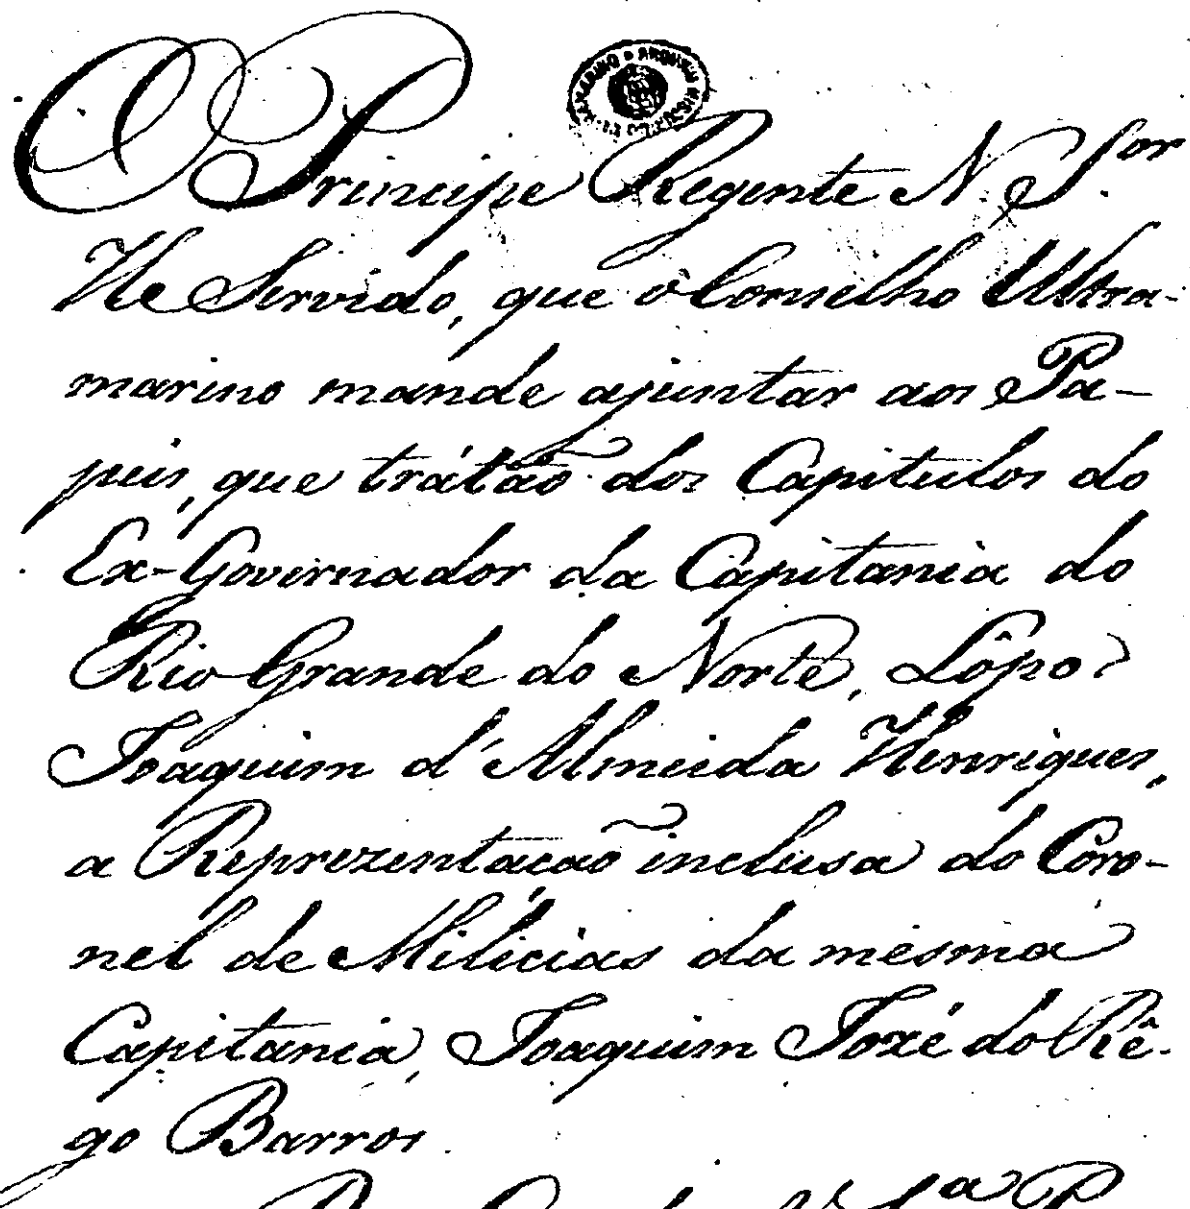 O Principe Regente N. Sor
He Servido, que o Conselho Ultra-
marino mande ajuntar aos Pa-
peis, que trátão dos Capitulos do
Ex-Governador da Capitania do
Rio Grande do Norte, Lôpo
Joaquim d'Almeida Henriques,
a Reprezentação inclusa do Coro-
nel de Milicias da mesma
Capitania, Joaquim Jozé do Rê-
go Barros.